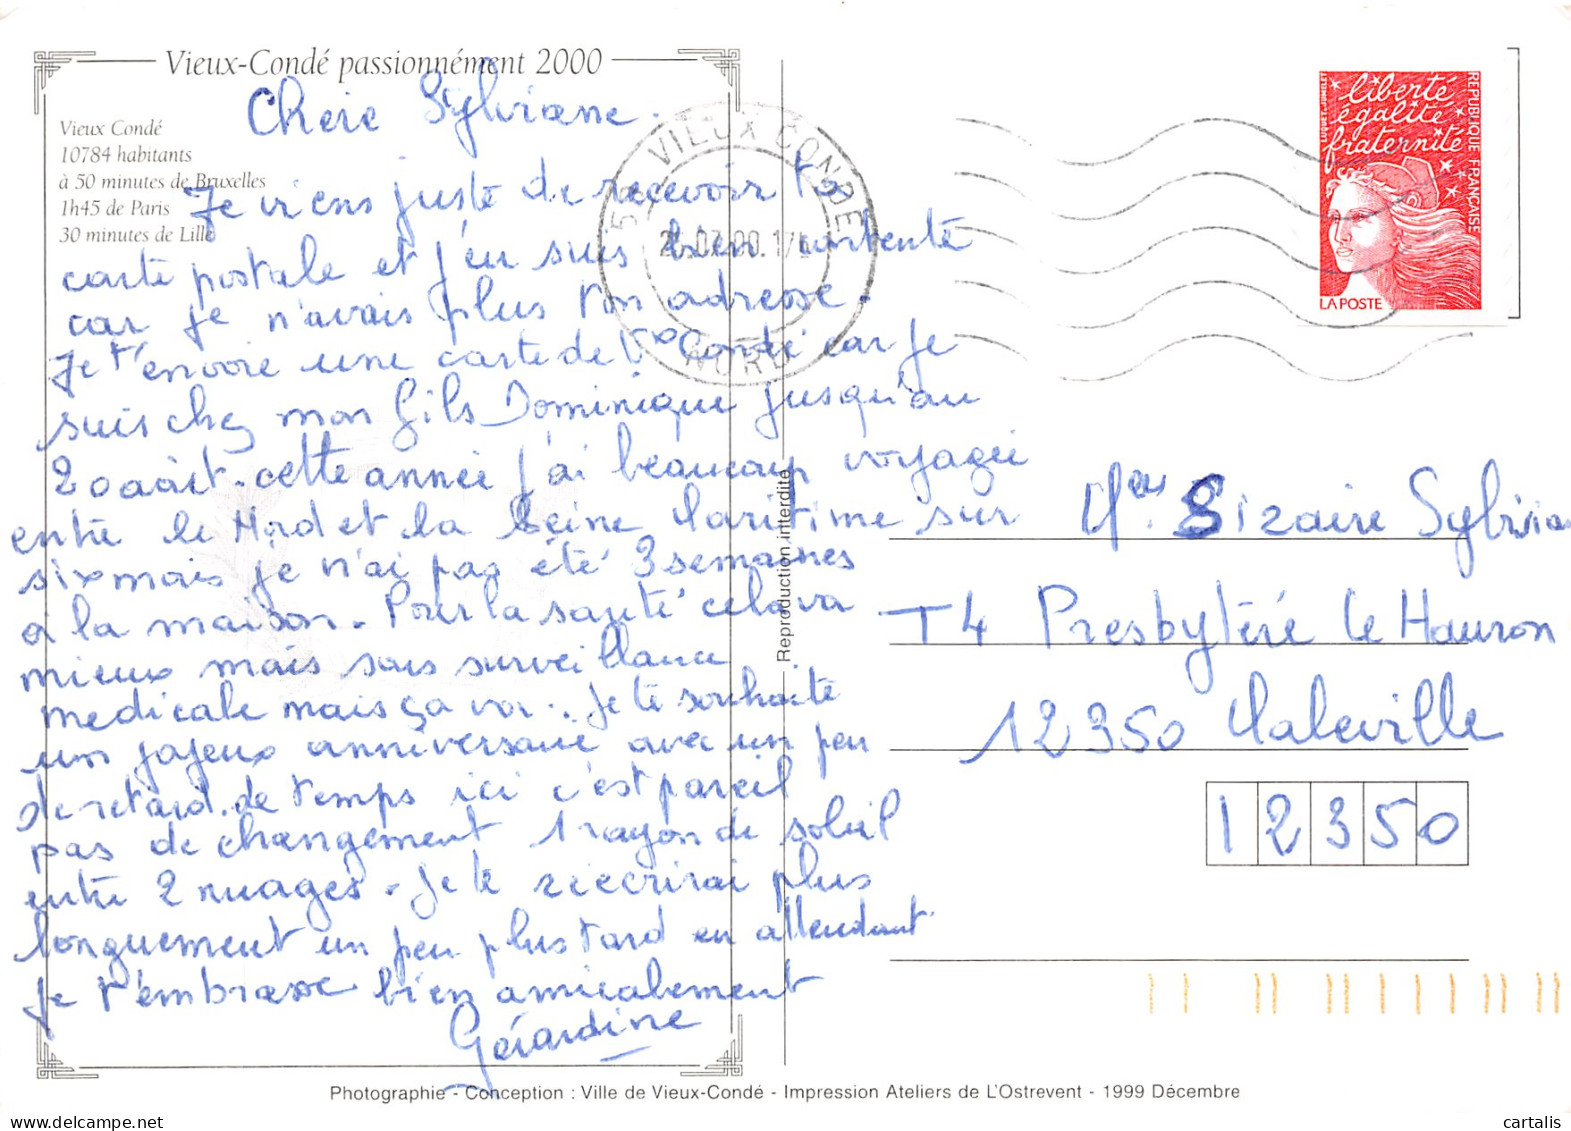 Vieux-Condé passionnément 2000
Vieux Condé
10784 habitants
à 50 minutes de Bruxelles
1h45 de Paris
30 minutes de Lille
Chere Sylviane.
Je viens juste de recevoir ta
carte postale et j'en suis bien contente
car je n'avais plus ton adresse.
Je t'envoie une carte de Vx Condé car je
suis chez mon fils Dominique jusqu'au
20 août. cette année j'ai beaucoup voyagée
entre le Nord et la Seine Maritime sur
six mois je n'ai pas été 3 semaines
à la maison. Pour la santé cela va
mieux mais sous surveillance
medicale mais ça va.. Je te souhaite
un joyeux anniversaire avec un peu
de retard. de temps ici c'est pareil
pas de changement 1 rayon de soleil
entre 2 nuages. Je te réecrirai plus
longuement un peu plus tard en attendant
je t'embrasse bien amicalement
Gérardine
VIEUX CONDE
NORD
Reproduction interdite
liberté
égalité
fraternité
RÉPUBLIQUE FRANÇAISE
LA POSTE
Sizaire Sylvia
T4 Presbytére le Hauron
12350 Maleville
12350
Photographie - Conception : Ville de Vieux-Condé - Impression Ateliers de L'Ostrevent - 1999 Décembre
cartalis